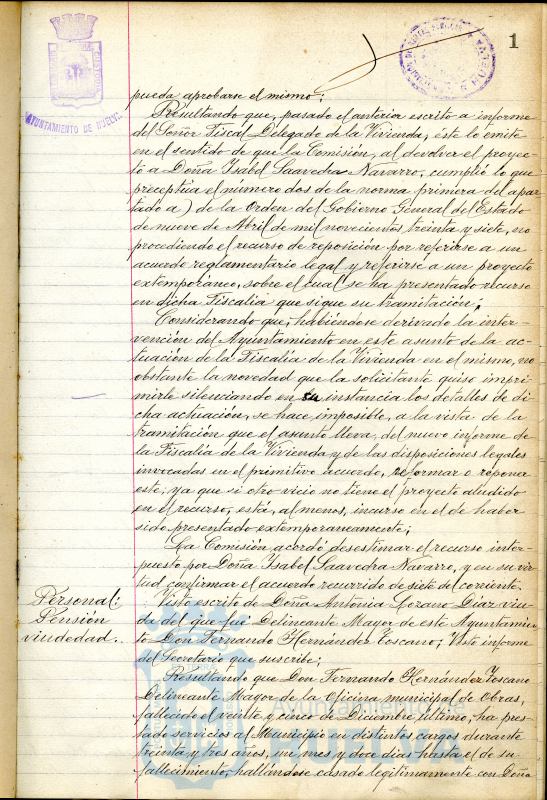 1
AYUNTAMIENTO DE HUELVA
pueda aprobarse el mismo;
Resultando que, pasado el anterior escrito a informe
del Señor Fiscal Delegado de la Vivienda, éste lo emite
en el sentido de que la Comisión, al devolver el proyec-
to a Doña Isabel Saavedra Navarro, cumplió lo que
preceptúa el número dos de la norma primera del apar-
tado a) de la Orden del Gobierno General del Estado
de nueve de Abril de mil novecientos treinta y siete, no
procediendo el recurso de reposición por referirse a un
acuerdo reglamentario legal y referirse a un proyecto
extemporáneo, sobre el cual se ha presentado recurso
en dicha Fiscalía que sigue su tramitación;
Considerando que, habiéndose derivado la inter-
vención del Ayuntamiento en este asunto de la ac-
tuación de la Fiscalía de la Vivienda en el mismo, no
obstante la novedad que la solicitante quiso impri-
mirle silenciando en su instancia los detalles de di-
cha actuación, se hace imposible, a la vista de la
tramitación que el asunto lleva, del nuevo informe de
la Fiscalía de la Vivienda y de las disposiciones legales
invocadas en el primitivo acuerdo, reformar o reponer
este; ya que si otro vicio no tiene el proyecto aludido
en el recurso, está, al menos, incurso en el de haber
sido presentado extemporáneamente;
La Comisión acordó desestimar el recurso inter-
puesto por Doña Isabel Saavedra Navarro, y en su vir-
tud, confirmar el acuerdo recurrido de siete del corriente.
Personal:
Pensión
viudedad.
Visto escrito de Doña Antonia Lozano Díaz viu-
da del que fué Delineante Mayor de este Ayuntamien-
to Don Fernando Hernández Toscano; Visto informe
del Secretario que suscribe;
Resultando que Don Fernando Hernández Toscano
Delineante Mayor de la Oficina municipal de Obras,
fallecido el veinte y cinco de Diciembre último, ha pres-
tado servicios al Municipio en distintos cargos durante
treinta y tres años, un mes y doce días hasta el de su
fallecimiento, hallándose casado legítimamente con Doña
Ayuntamiento de